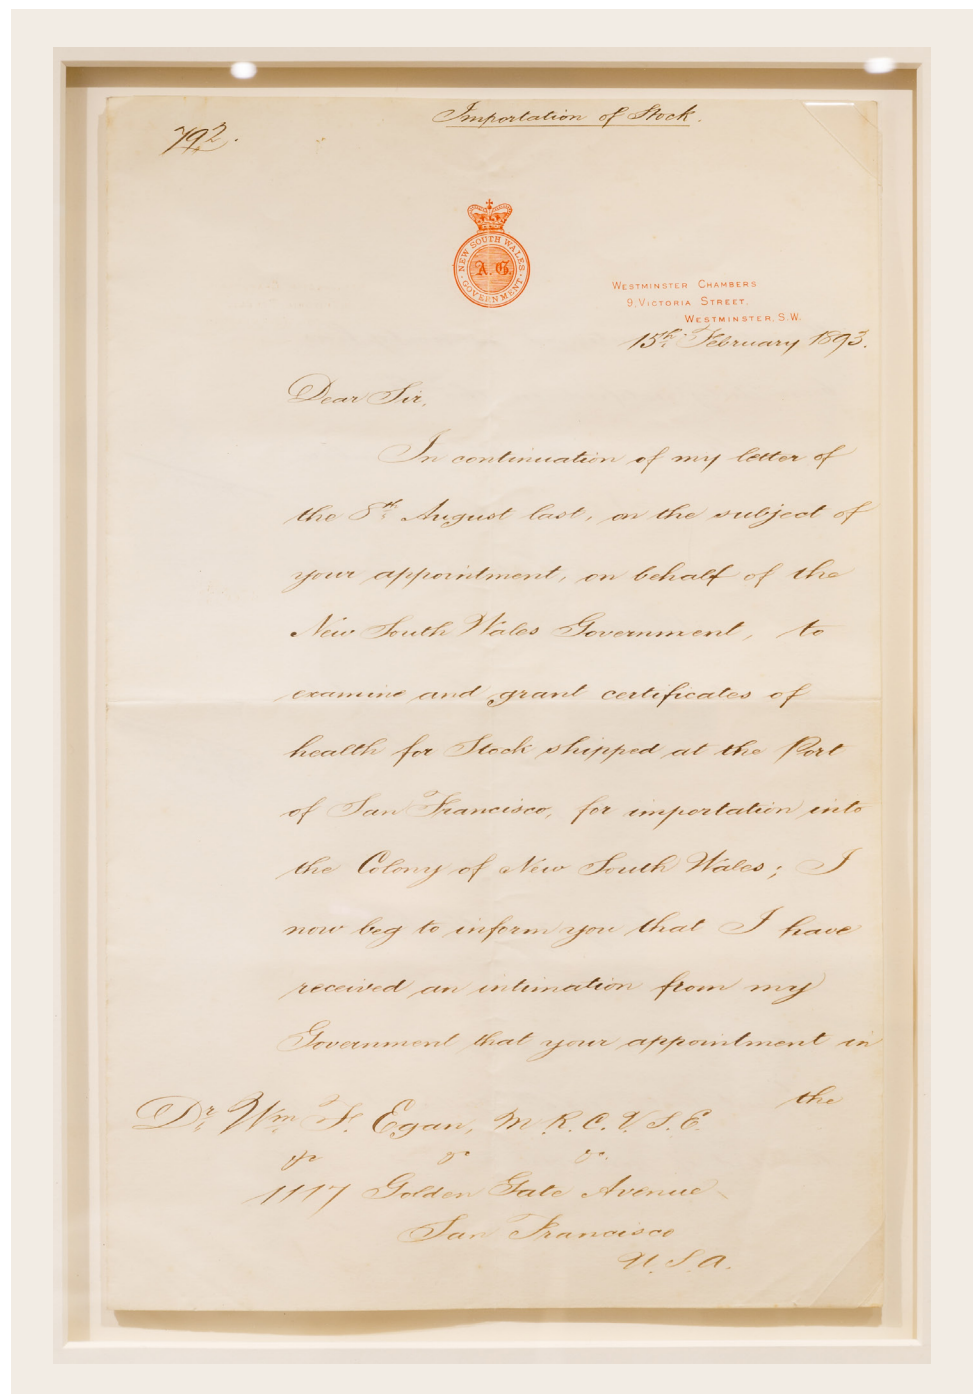 Importation of Stock.
792.
NEW SOUTH WALES
A.G.
GOVERNMENT
WESTMINSTER CHAMBERS
9, VICTORIA STREET,
WESTMINSTER, S.W.
15th February 1893.
Dear Sir,
In continuation of my letter of
the 8th August last, on the subject of
your appointment, on behalf of the
New South Wales Government, to
examine and grant certificates of
health for Stock shipped at the Port
of San Francisco, for importation into
the Colony of New South Wales; I
now beg to inform you that I have
received an intimation from my
Government that your appointment in
the
Dr. Wm. F. Egan, M.R.C.V.S.E.
1117 Golden Gate Avenue
San Francisco
U.S.A.